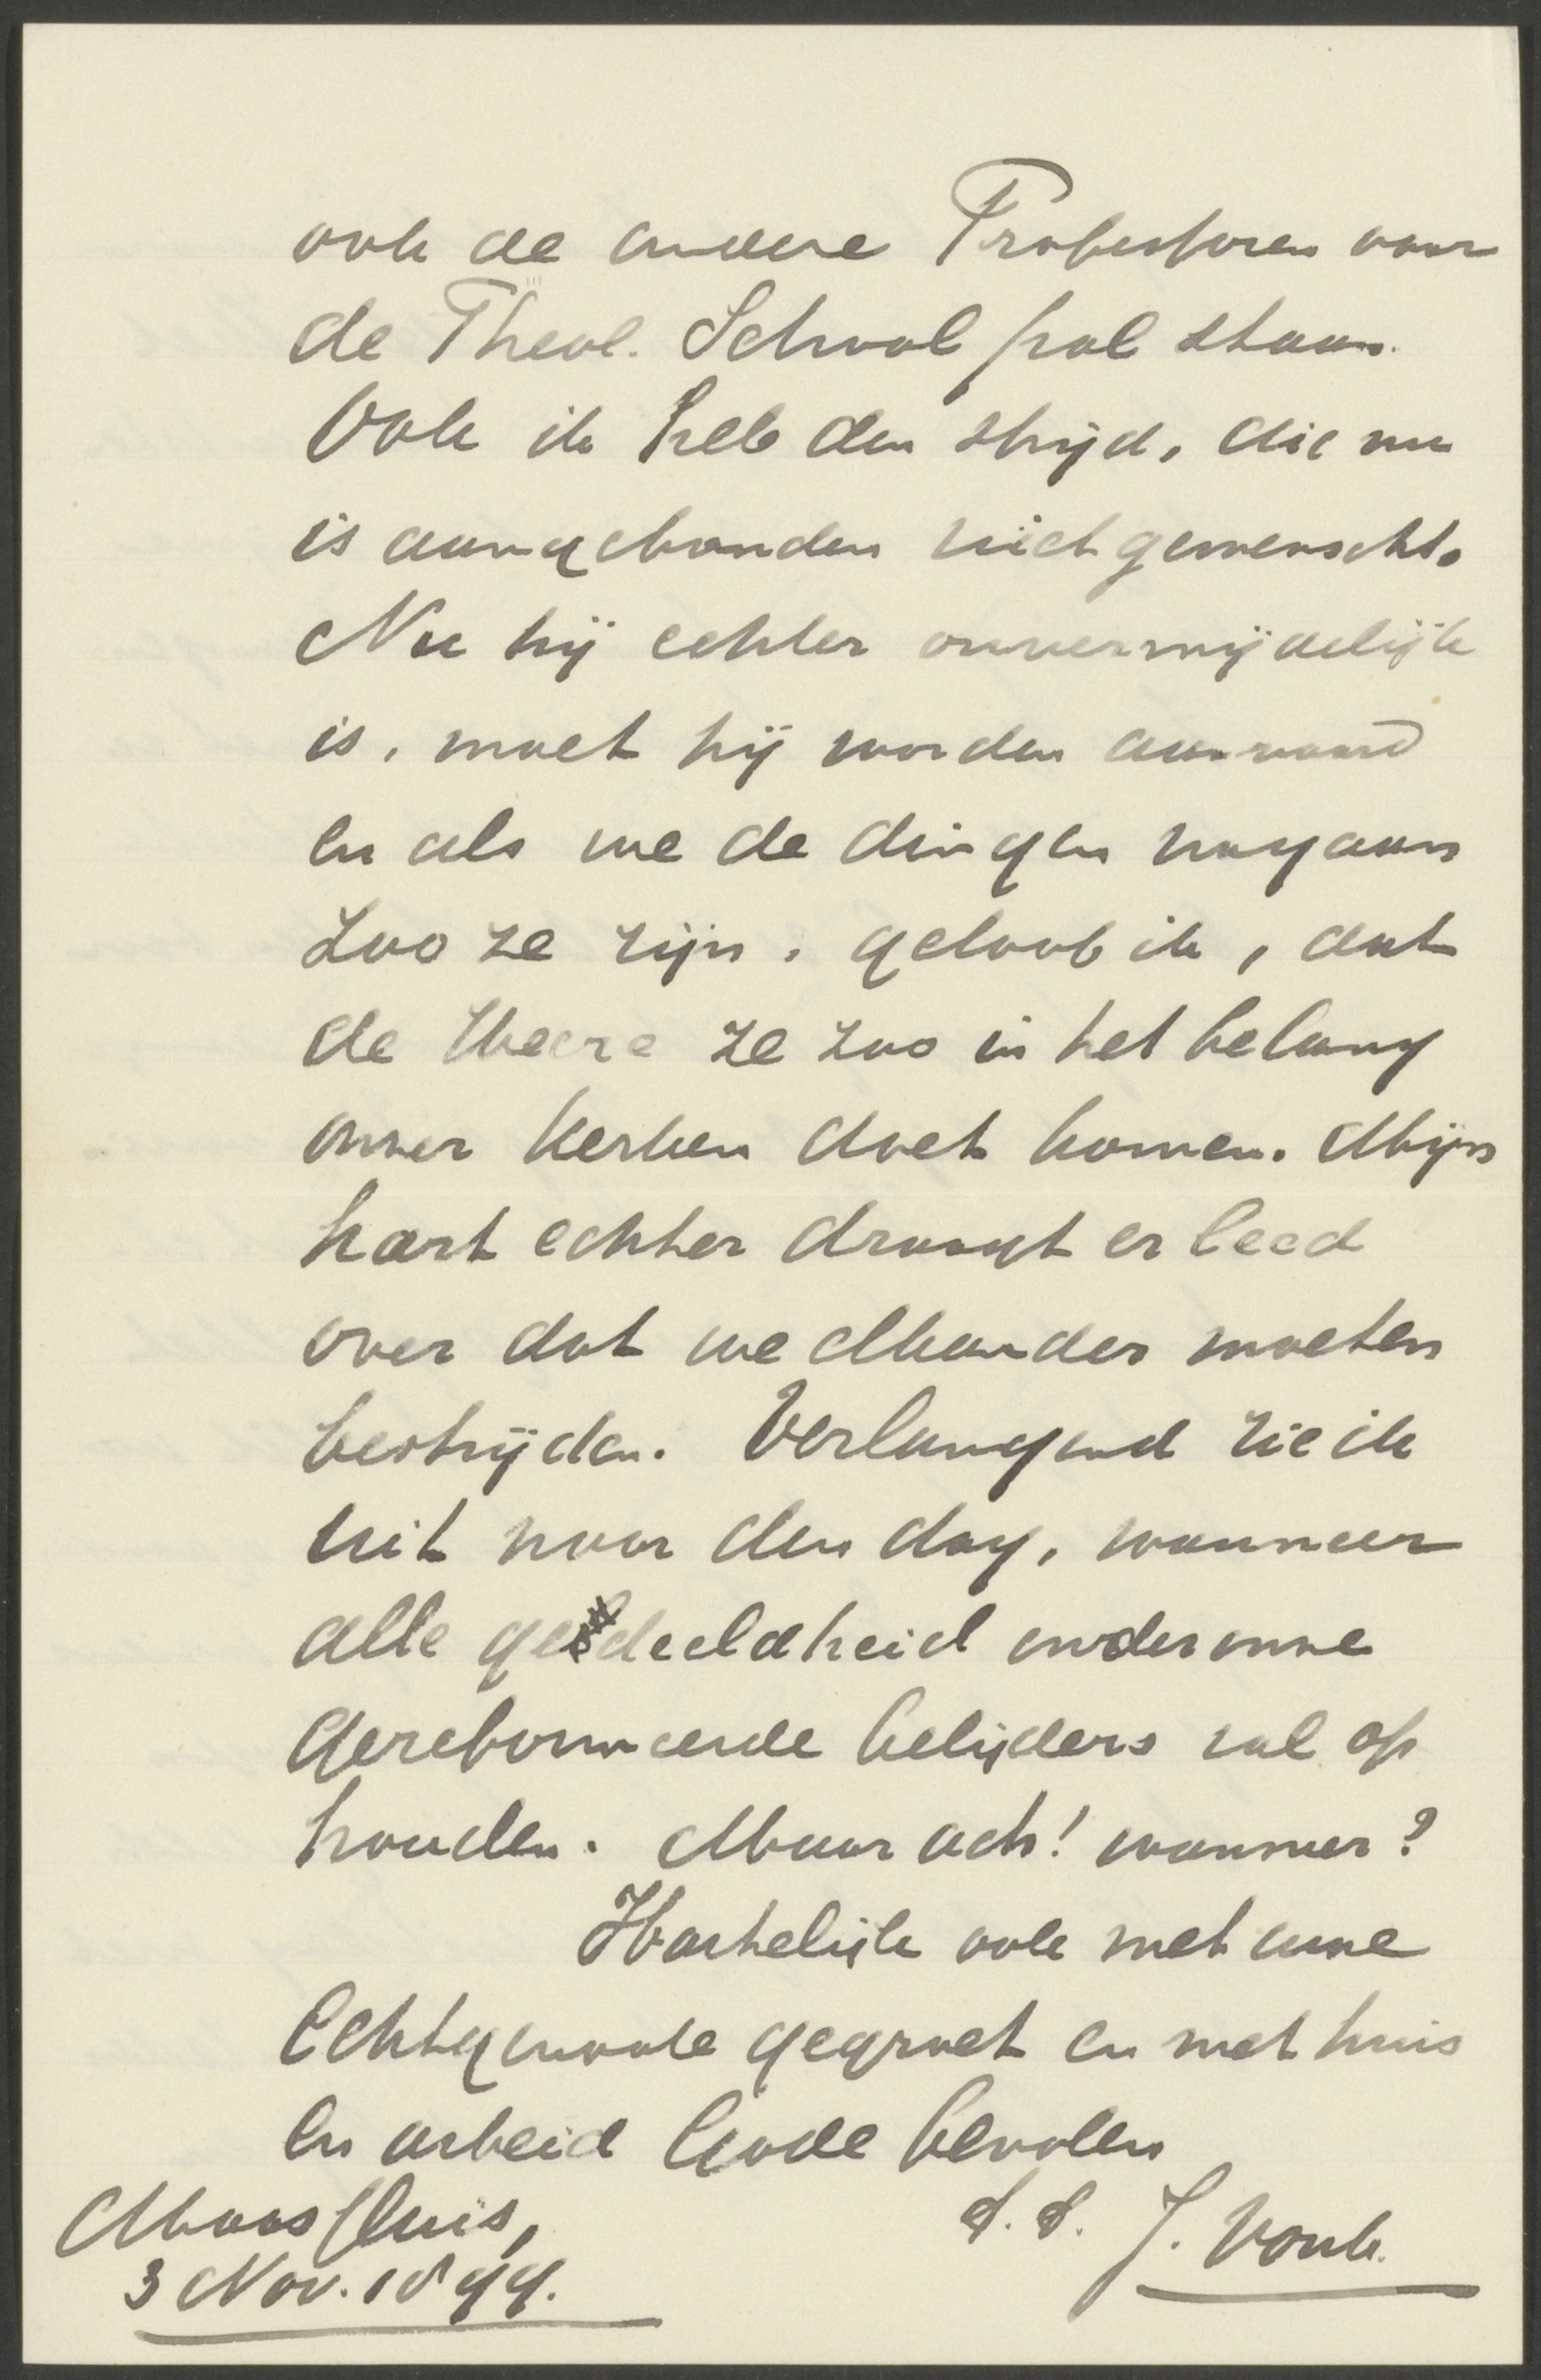 ook de andere Professoren voor
de Theol. School pal staan.
Ook ik heb den strijd, die nu
is aangebonden niet gewenscht.
Nu hij echter onvermijdelijk
is, moet hij worden aanvaard
en als we de dingen nagaan
zoo ze zijn, geloof ik, dat
de Heere ze zoo in het belang
onzer kerken doet komen. Mijn
hart echter draagt er leed
over dat we elkander moeten
bestrijden. Verlangend zie ik
uit naar den dag, wanneer
alle gedeeldheid onder onze
Gereformeerde belijders zal op
houden. Maar ach! wanneer?
Hartelijk ook met uwe
Echtgenoote gegroet en met huis
en arbeid Gode bevolen
Maassluis,
t.t. J. Vonk.
3 Nov. 1899.